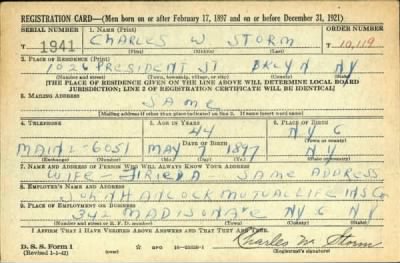 REGISTRATION CARD—(Men born on or after February 17, 1897 and on or before December 31, 1921)
SERIAL NUMBER 1. NAME (Print) ORDER NUMBER
T 1941 CHARLES W STORM T 10,119
(First) (Middle) (Last)
2. PLACE OF RESIDENCE (Print)
1024 PRESIDENT ST BKLYN NY
(Number and street) (Town, township, village, or city) (County) (State)
[THE PLACE OF RESIDENCE GIVEN ON THE LINE ABOVE WILL DETERMINE LOCAL BOARD
JURISDICTION; LINE 2 OF REGISTRATION CERTIFICATE WILL BE IDENTICAL]
3. MAILING ADDRESS
SAME
[Mailing address if other than place indicated on line 2. If same insert word same]
4. TELEPHONE 5. AGE IN YEARS 6. PLACE OF BIRTH
44 NYC
MAIN 2-6051 DATE OF BIRTH
MAY 7 1897 NY
(Exchange) (Number) (Mo.) (Day) (Yr.) (State or country)
7. NAME AND ADDRESS OF PERSON WHO WILL ALWAYS KNOW YOUR ADDRESS
WIFE - FRIEDA SAME ADDRESS
8. EMPLOYER'S NAME AND ADDRESS
JOHN HANCOCK MUTUAL LIFE INS Co
9. PLACE OF EMPLOYMENT OR BUSINESS
342 MADISON AVE NYC NY
(Number and street or R. F. D. number) (Town) (County) (State)
I AFFIRM THAT I HAVE VERIFIED ABOVE ANSWERS AND THAT THEY ARE TRUE.
D. S. S. Form 1 GPO Charles W. Storm
(Revised 1-1-42) (Registrant's signature)